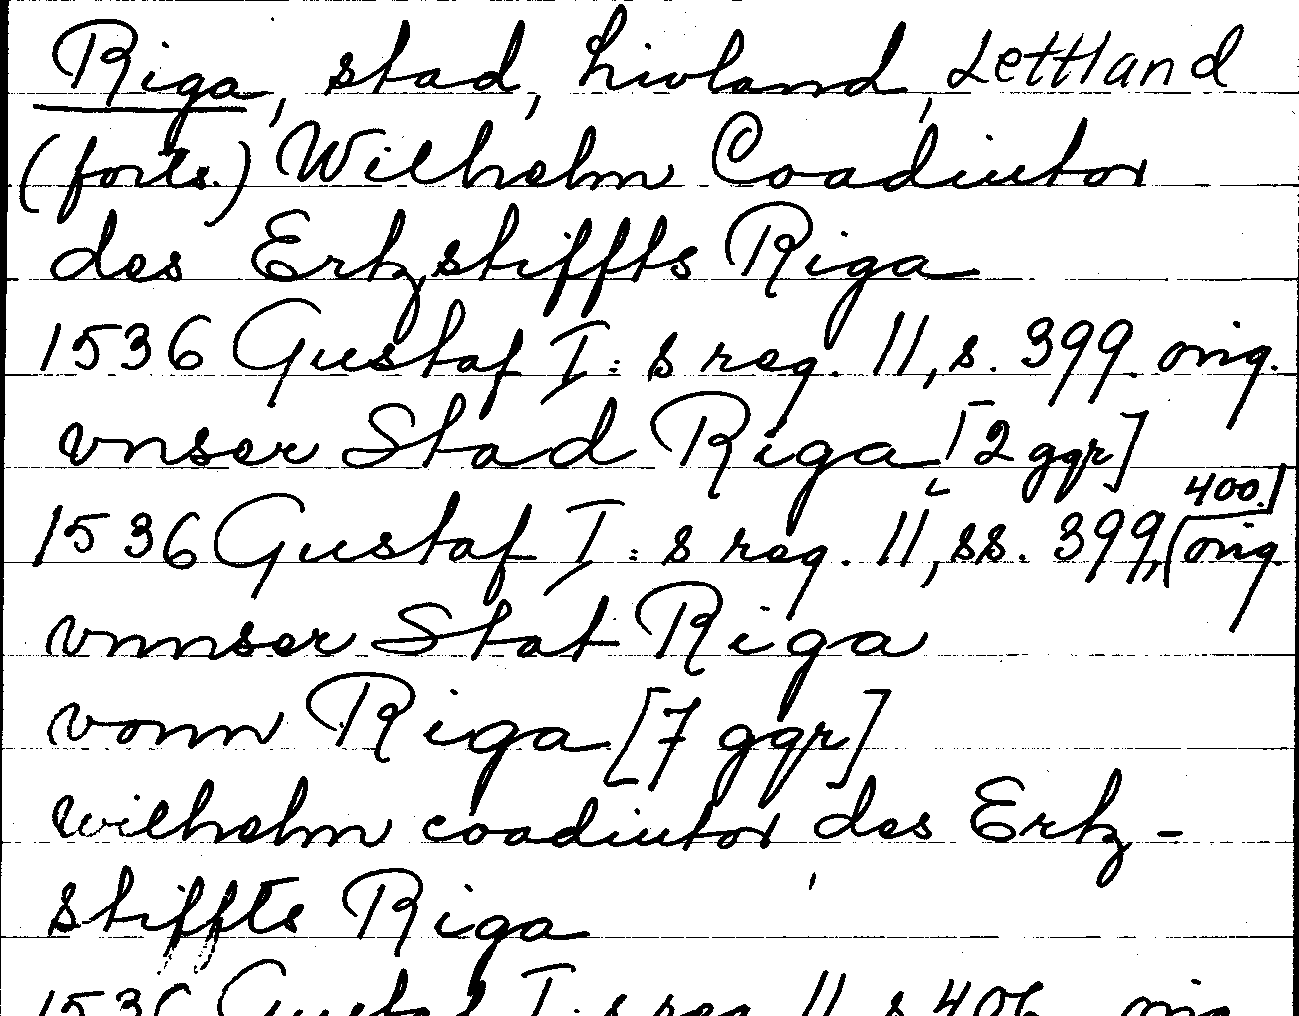 Riga, stad, Livland, Lettland
(forts.) Wilhelm Coadiutor
des Ertzstiffts Riga
1536 Gustaf I:s reg. 11, s. 399. orig.
vnser Stad Riga [2 ggr]
400.]
1536 Gustaf I:s reg. 11, ss. 399, [orig.
vnnser Stat Riga
vonn Riga [7 ggr]
wilhelm coadiutor des Ertz-
stiffts Riga
1536 Gustaf I:s reg. 11 s 406 orig